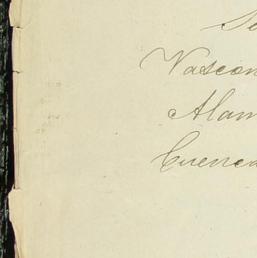 Se
Vascon
Alam
Cuenca